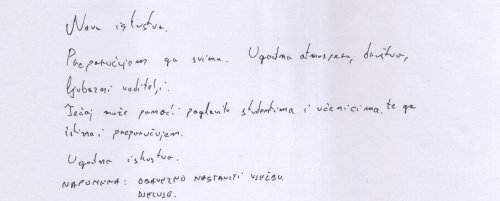 Nova iskustva.
Preporučujem ga svima. Ugodna atmosfera, društvo,
ljubazni voditelji.
Tečaj može pomoći pogotovo studentima i učenicima, te ga
istima i preporučujem.
Ugodna iskustva.
NAPOMENA: OBAVEZNO NASTAVITI VJEŽBU.
DJELUJE.